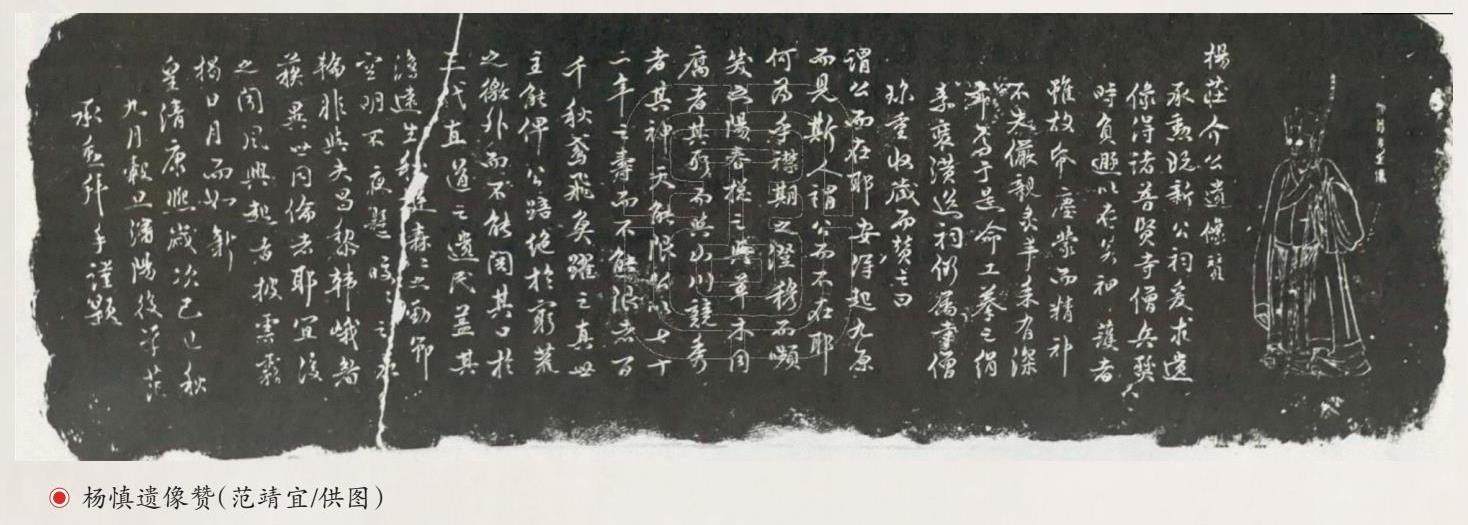 楊莊介公遺像贊
承勳既新公祠爰求遺
像得諸普賢寺僧兵燹
時負避以存矣初護者
雖故帋塵蒙而精神
不失儼親炙有深
焉于是命工摹之絹
素裝潢送祠仍屬寺僧
珍重收藏而贊之曰
謂公而在耶安得起九原
而見斯人謂公而不在耶
何為乎襟期之澄穆而嚬
笑陽春之與草木同
腐者其形而與山川競秀
者其神天能限公以七十
二年之壽而不能限者百
千秋鳶飛魚躍之真世
主能俾公踣絕於窮荒
之徼外而不能閟其口於
三代直道之遺民蓋其
遠生森之
空明不夜懸皎之冰
輪非與夫昌黎韓峨眉
蘇異世同倫者耶宜後
之聞風興起者披雲霧
揭日月而如新
皇清康熙歲次己巳秋
九月穀旦瀋陽後學范
承勳拜手謹題
杨慎遗像赞(范靖宜/供图)